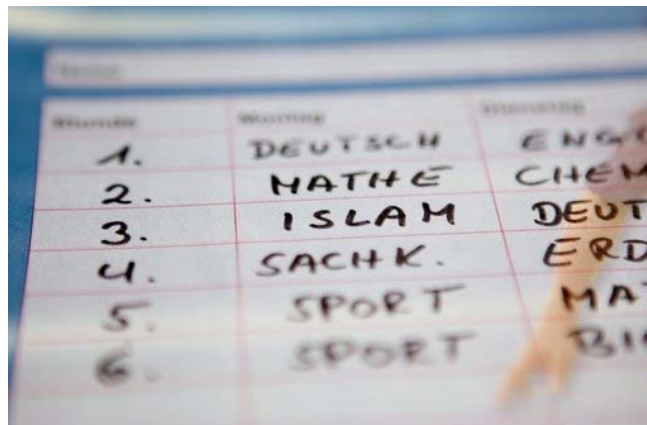 Name
Stunde Montag Dienstag
1. DEUTSCH ENG
2. MATHE CHEM
3. ISLAM DEUT
4. SACHK. ERD
5. SPORT MA
6. SPORT BI